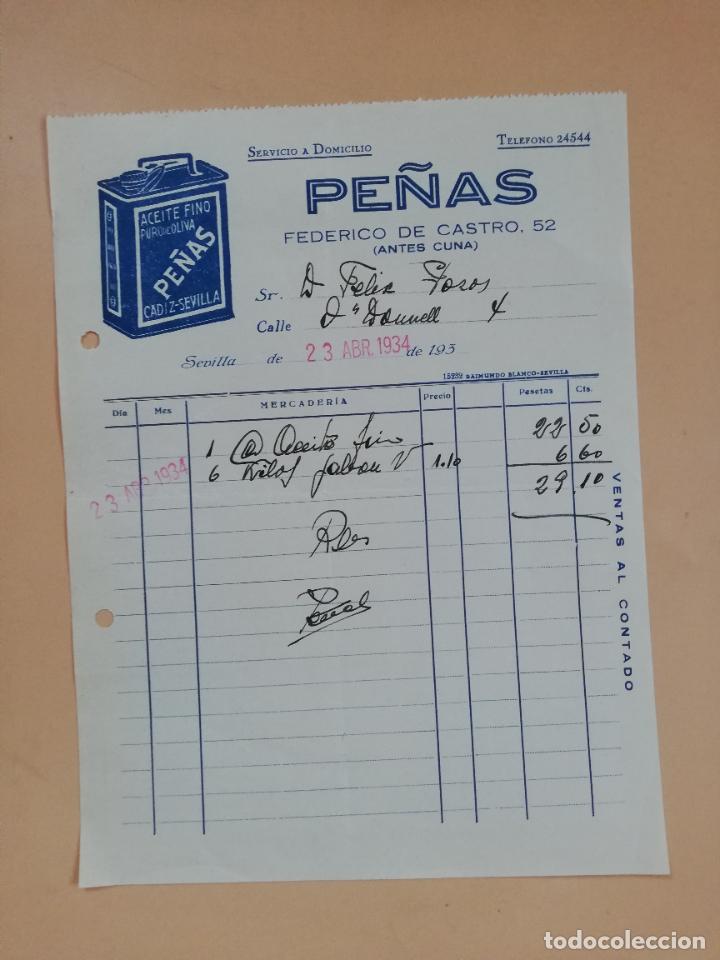 SERVICIO A DOMICILIO
TELEFONO 24544
PEÑAS
FEDERICO DE CASTRO, 52
(ANTES CUNA)
ACEITE FINO
PURO DE OLIVA
PEÑAS
CADIZ-SEVILLA
Sr. D Felix
Calle O'Donnell 4
Sevilla de 23 ABR. 1934 de 193
15232 RAIMUNDO BLANCO-SEVILLA
Día Mes MERCADERÍA Precio Pesetas Cts.
1 @ Aceite fino 22 50
23 ABR. 1934
6 Kilos Jabon V 1.10 6 60
29 10
VENTAS AL CONTADO
todocoleccion
todocoleccion.net